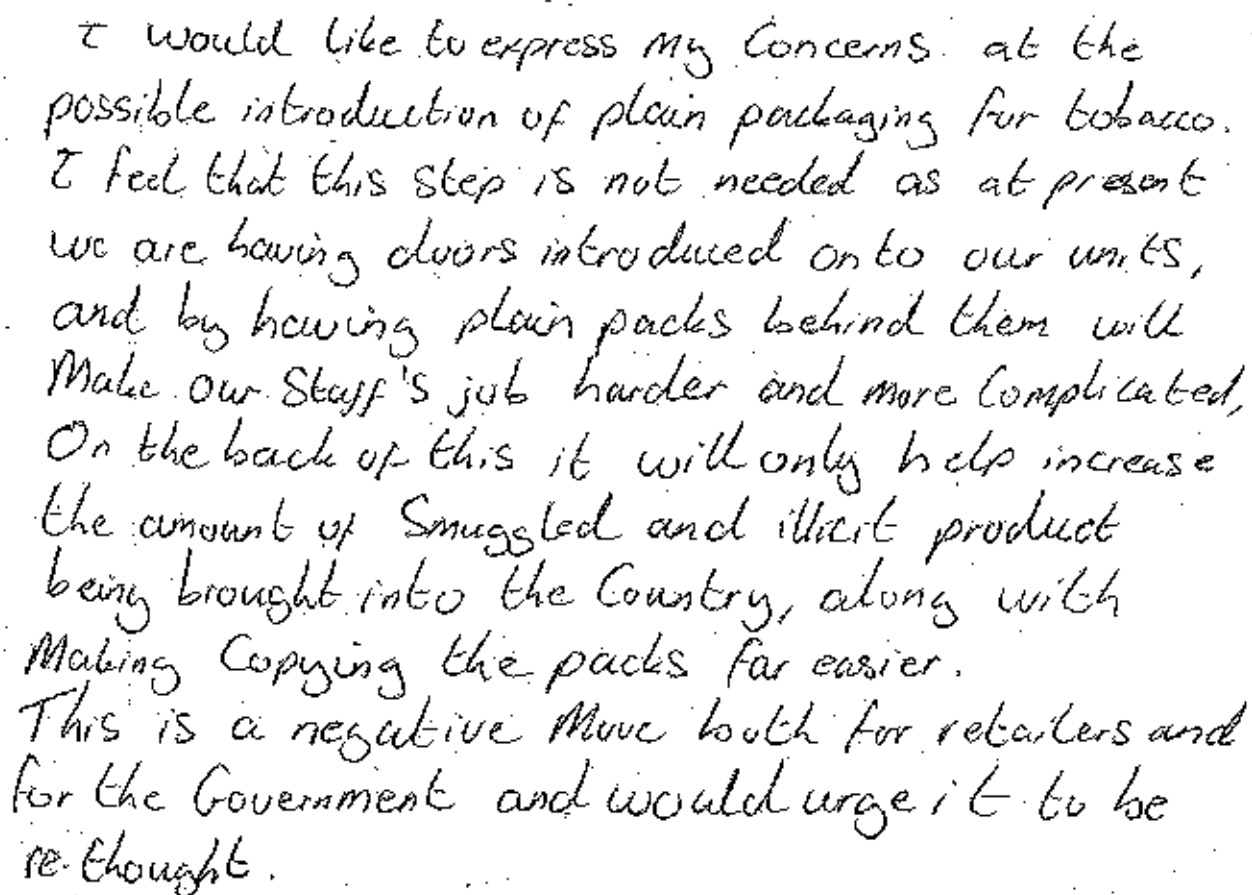 I would like to express my Concerns at the
possible introduction of plain packaging for tobacco.
I feel that this step is not needed as at present
we are having doors introduced on to our units,
and by having plain packs behind them will
Make our Staff's job harder and more Complicated,
On the back of this it will only help increase
the amount of Smuggled and illicit product
being brought into the Country, along with
Making Copying the packs far easier.
This is a negative Move both for retailers and
for the Government and would urge it to be
re-thought.